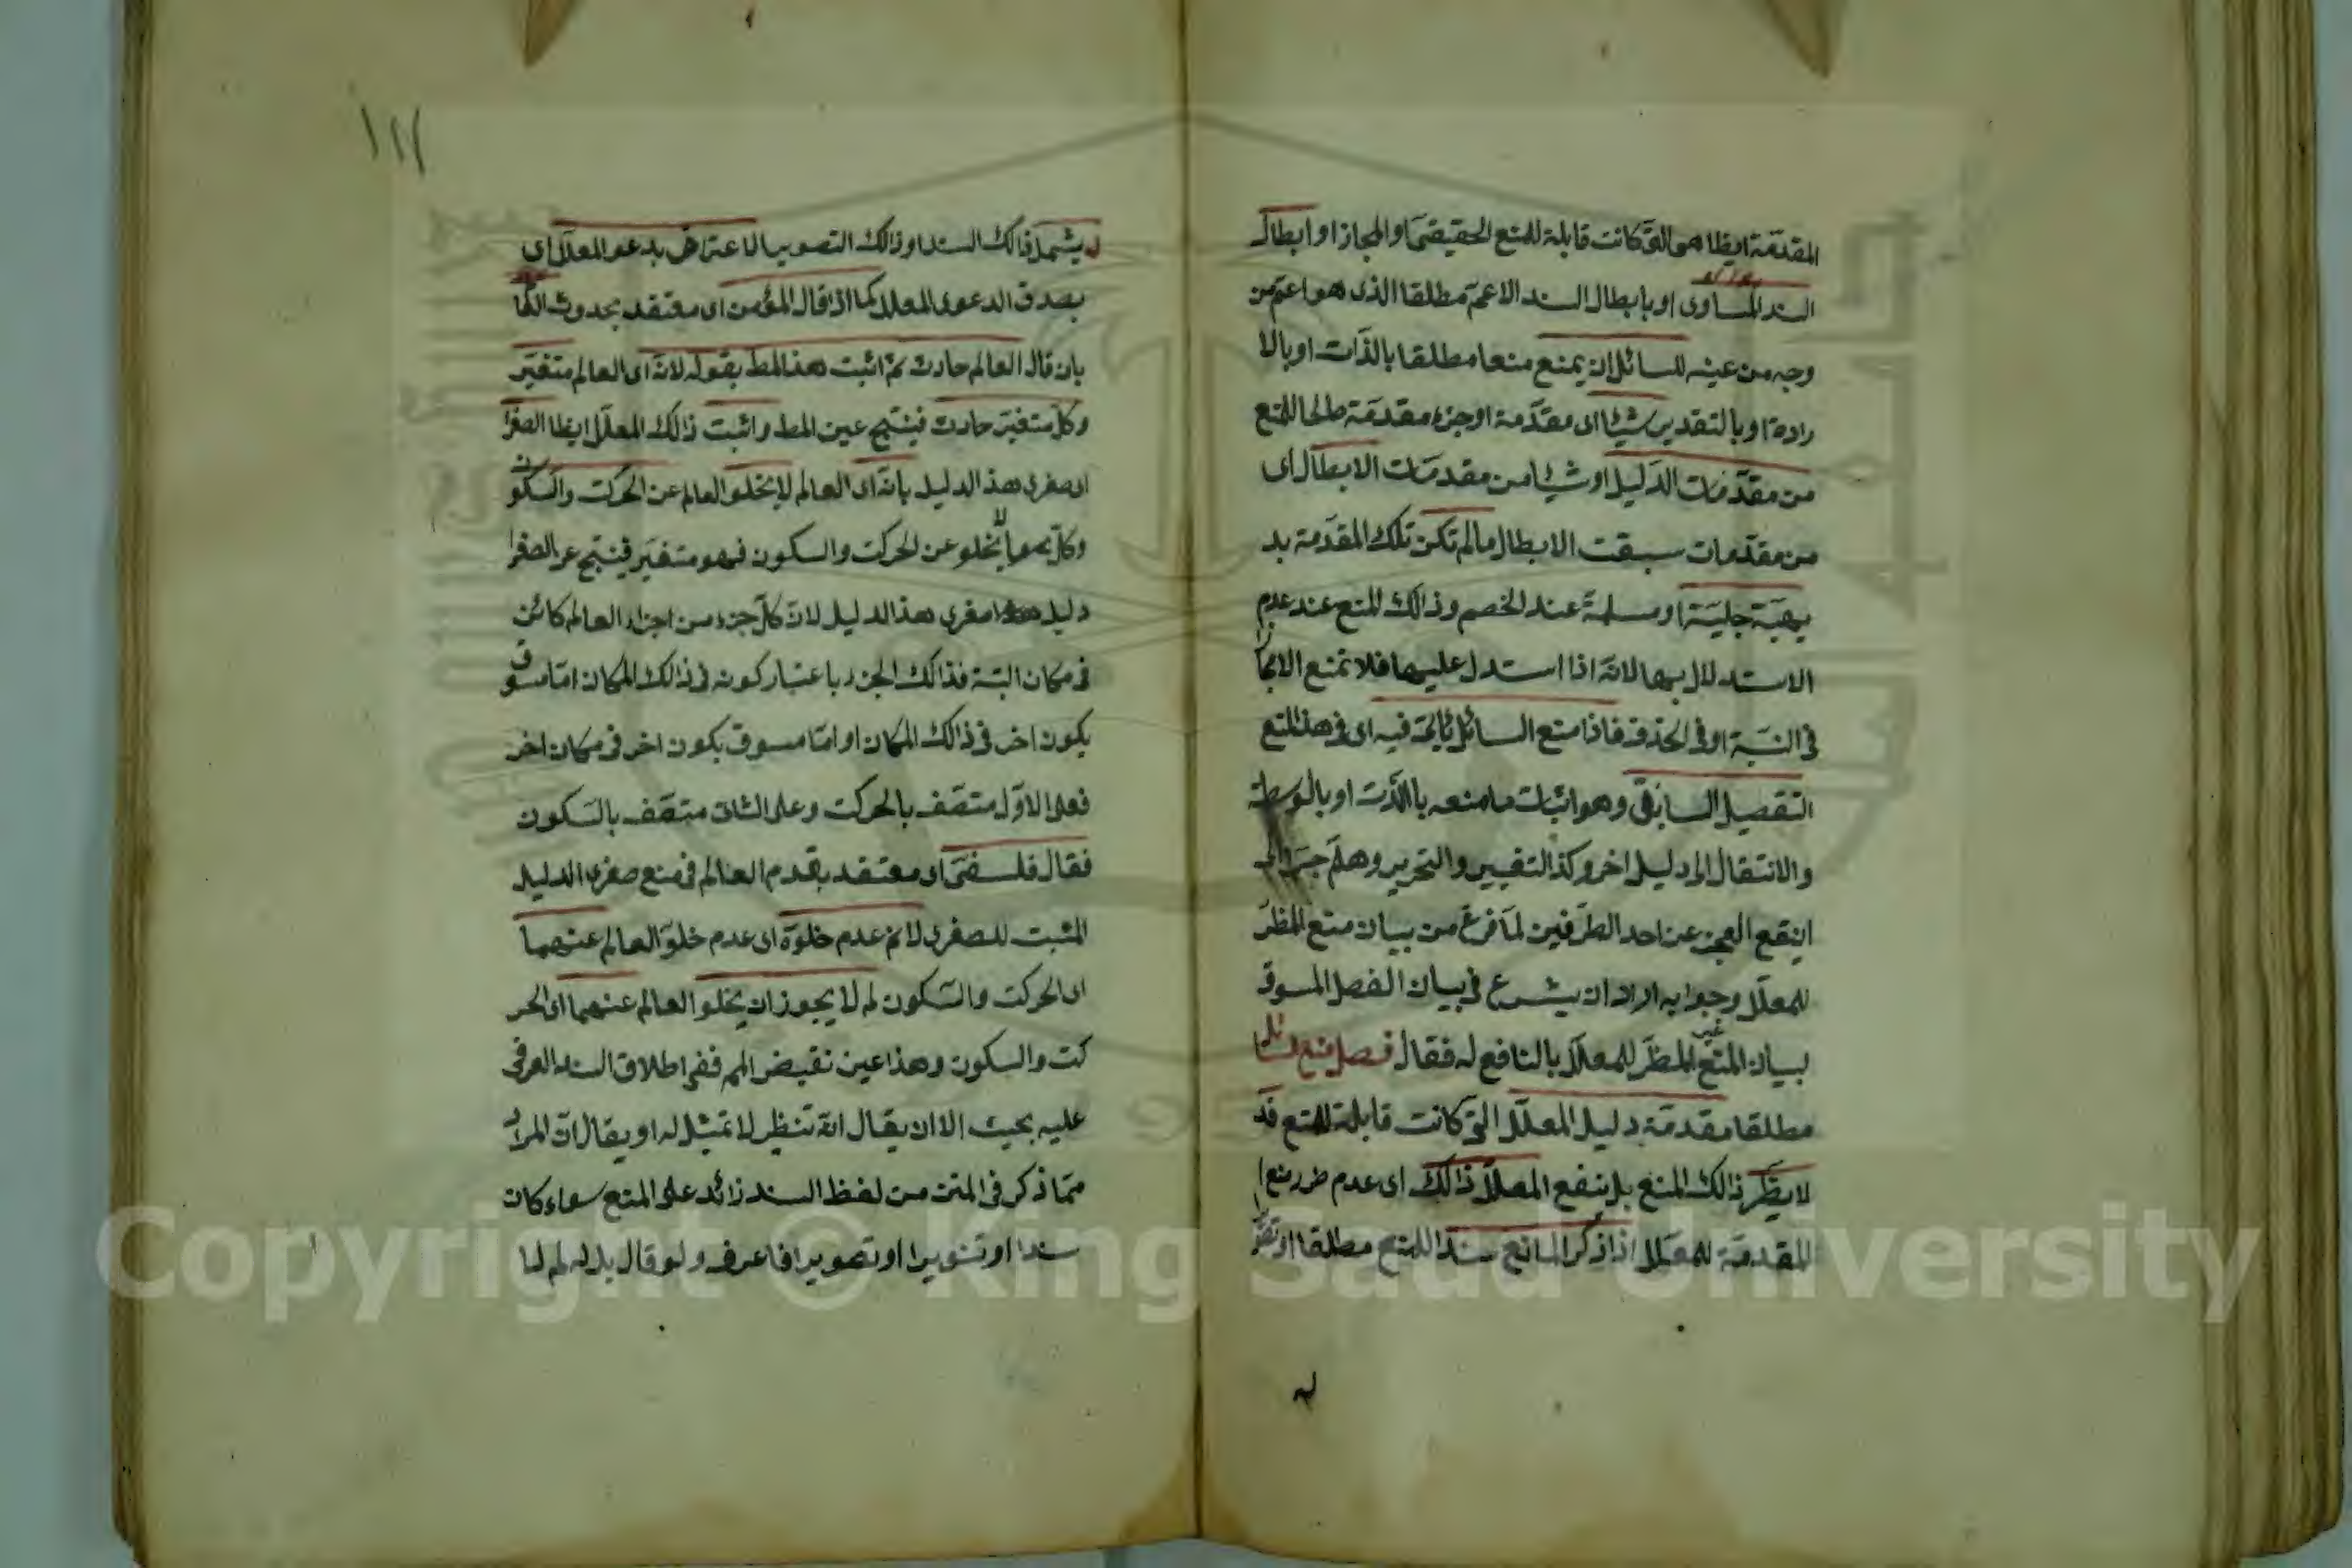 المقدمة ايظا هو التى كانت قابلة للمنع الحقيقى او المجاز او ابطال
السند المساوى او بابطال السند الاعم مطلقا الذى هو اعم من
وجه من عينه للسائل ان يمنع منعا مطلقا بالذات او بالا
رادة او بالتقدير شيئا اى مقدمة او جزء مقدمة صالحا للمنع
من مقدمات الدليل او شيئا من مقدمات الابطال اى
من مقدمات سبقت الابطال مالم تكن تلك المقدمة بد
يهية جلية او مسلمة عند الخصم وذالك المنع عند عدم
الاستدلال بها لانه اذا استدل عليها فلا تمنع
فى النية او فى الحذف فاذا منع السائل فيه اى فى هذا المنع
التفصيل السابق وهو اثبات ما منعه بالذات او بالوسطة
والانتقال الى دليل اخر وكذ التغيير والتحرير وهلم جرا الى
ان يقع العجز عن احد الطرفين لما فرغ من بيان منع المظر
للمعلل وجوابه اراد ان يشرع فى بيان الفصل المسوق
لبيان المنع غير المظر للمعلل بالنافع له فقال فصل منع
مطلقا مقدمة دليل المعلل التى كانت قابلة للمنع قد
لا يظر ذالك المنع بل ينفع المعلل ذالك اى عدم ضرر منع
المقدمة للمعلل اذا ذكر المانع سندا للمنع مطلقا او
له
١١٧
له يشمل ذالك السند او ذالك التصوير الاعتراض بدعو المعلل اى
بصدق الدعوى المعلل كما اذا قال المؤمن اى معتقد بحدوث
بان قال العالم حادث ثم اثبت هذا المط بقوله لانه اى العالم متغير
وكل متغير حادث فينتج عين المط واثبت ذالك المعلل ايظا الصغرا
اى صغرى هذ الدليل بانه اى العالم لا يخلو العالم عن الحركت والسكون
وكل ما لا يخلو عن الحركت والسكون فهو متغير فينتج الصغرا
دليل صغرى هذ الدليل لان كل جزء من اجزاء العالم كائن
فى مكان البتة فذالك الجزء باعتبار كونه فى ذالك المكان اما مسبوق
بكون اخر فى ذالك المكان او اما مسبوق بكون اخر فى مكان اخر
فعلى الاول متصف بالحركت وعلى الثانى متصف بالسكون
فقال فلسفى او معتقد بقدم العالم فى منع صغرى الدليل
المثبت للصغرى لانم عدم خلوه اى عدم خلو العالم عنهما
اى الحركت والسكون لم لا يجوز ان يخلو العالم عنهما اى الحر
كت والسكون وهذا عين نقيض المم ففى اطلاق السند العرفى
عليه بحيث الا ان يقال انه تنظير لا تمثيل له او يقال ان المراد
مما ذكر فى المتن من لفظ السند زائد على المنع سواء كان
سندا او تنويرا او تصويرا فاعرف ولو قال بدله لم لما
Copyright © King Saud University